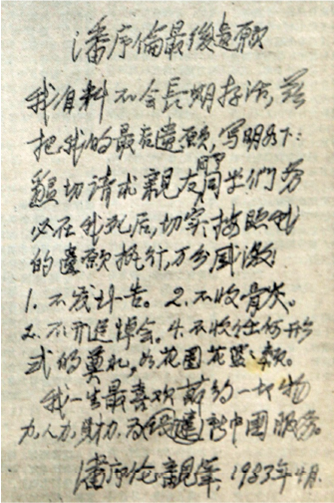 潘序倫最後遺願
我自料不会長期存活，茲
把我的最后遺願，写明如下：
懇切请求親友同事同学們务
必在我死后，切实按照我
的遺願执行，万分感激！
1. 不发讣告。2. 不收骨灰。
3. 不开追悼会。4. 不收任何形
式的奠礼，如花圈花篮之类。
我一生最喜欢节约一切物
力、人力、财力，为建設新中國服务。
潘序伦親笔，1983年4月.